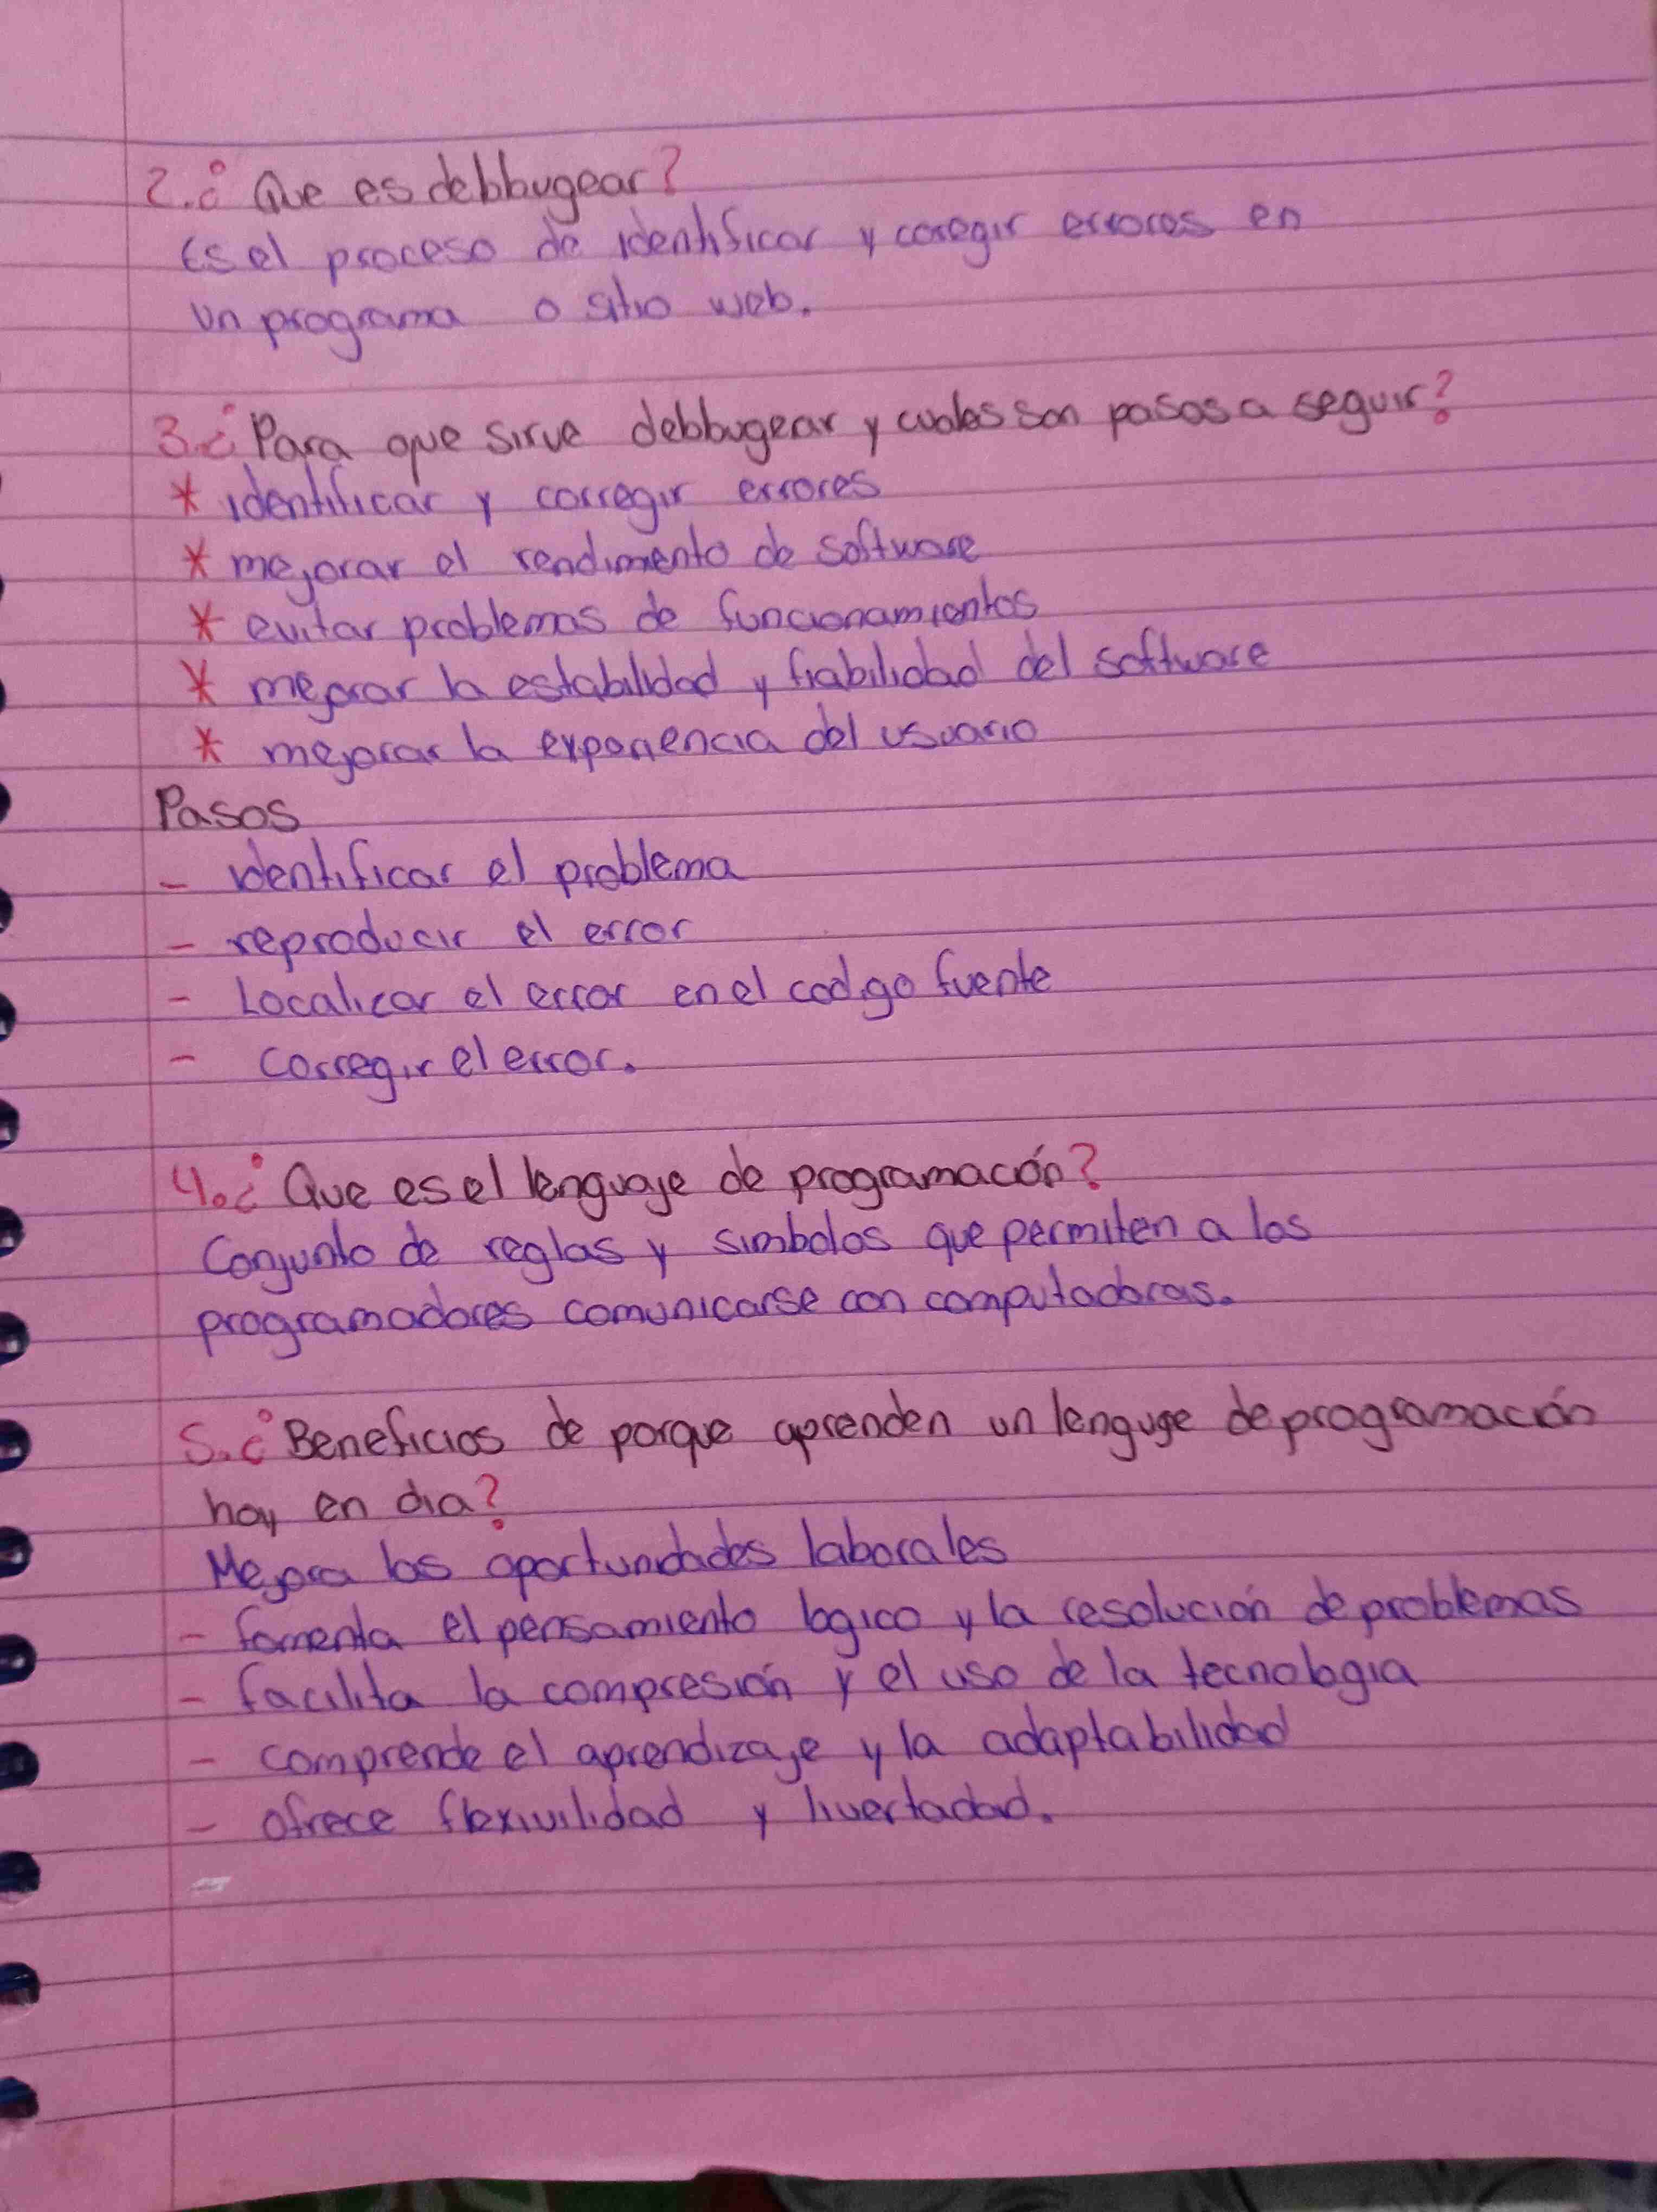 2.¿ Que es debbugear?
Es el proceso de identificar y coregir errores en
un programa o sitio web.
3.¿ Para que sirve debbugear y cuales son pasos a seguir?
* identificar y corregir errores
* mejorar el rendimento de software
* evitar problemas de funcionamientos
* mejorar la estabilidad y fiabilidad del software
* mejorar la experiencia del usuario
Pasos
- identificar el problema
- reproducir el error
- Localicar el error en el codigo fuente
- corregir el error.
4.¿ Que es el lenguaje de programación?
Conjunto de reglas y simbolos que permiten a los
programadores comunicarse con computadoras.
5.¿ Beneficios de porque aprenden un lenguge de programación
hoy en dia?
Mejora las oportunidades laborales
- fomenta el pensamiento logico y la resolución de problemas
- facilita la compresión y el uso de la tecnologia
- comprende el aprendizaje y la adaptabilidad
- ofrece flexivilidad y livertadad.